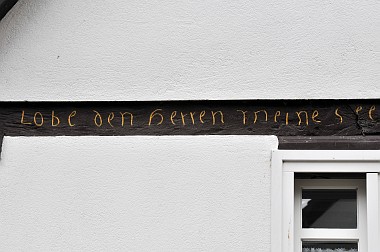 Lobe den Herren meine See